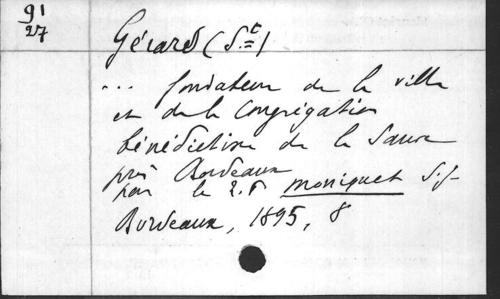 91
27
Gérard (St)
... fondateur de la ville
et de la Congrégation
bénédictine de la Sauve
près Bordeaux
par le R.P. Moniquet S.J.
Bordeaux, 1895, 8